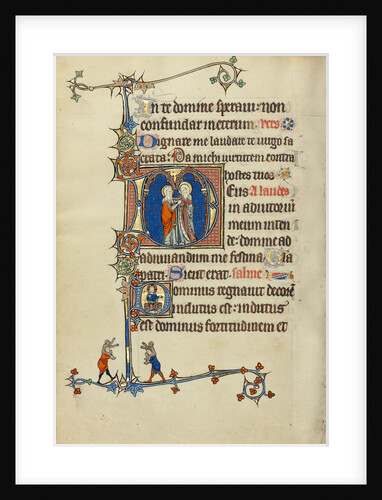 In te domine speraui: non
confundar in eternum. vers
Dignare me laudare te uirgo sa
crata: Da michi uirtutem contra
hostes tuos
Eus A laudes
in adiutoriū
meum inten
de: domine ad
adiuuandum me festina Gla
patri. Sicut erat. salme
Dominus regnauit decorē
indutus est: indutus
est dominus fortitudinem et